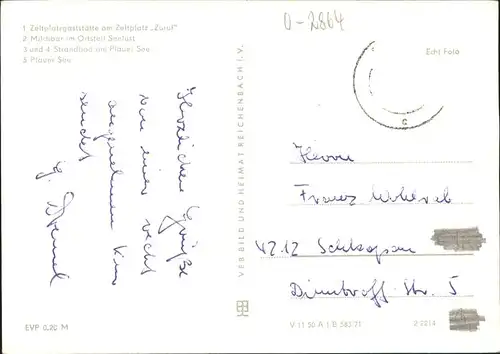 0-2864
1 Zeltplatzgaststätte am Zeltplatz „Zuruf"
2 Milchbar im Ortsteil Senfast
3 und 4 Strandbad am Plauer See
5 Plauer See
Echt Foto
Herzliche Grüße
von einer recht
angenehmen Kur
sendet
G.
VEB BILD UND HEIMAT REICHENBACH I. V.
Herrn
Franz Wohlrab
4212 Schkopau
Dimitroff-Str. 5
EVP 0,20 M
V 11 50 A 1 B 583/71
2 2814